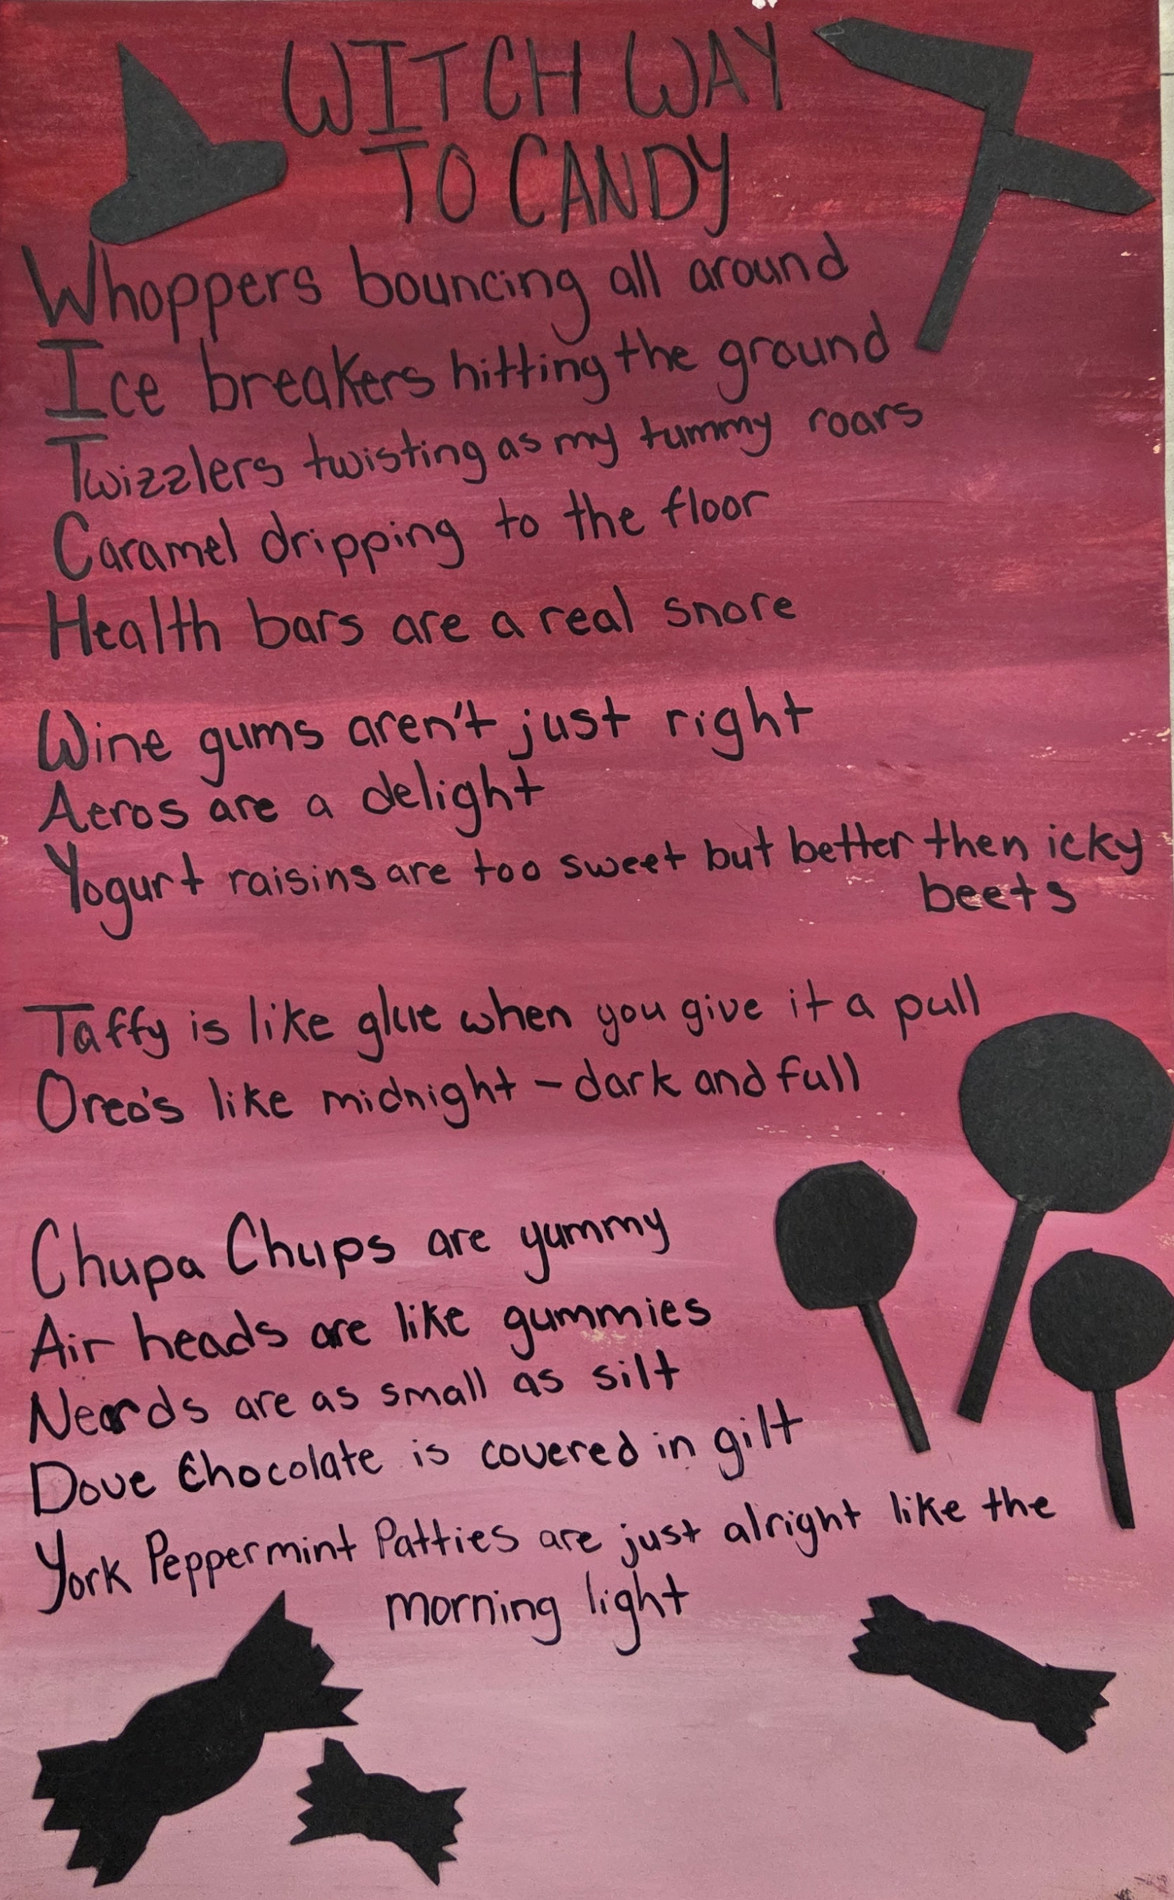 WITCH WAY
TO CANDY
Whoppers bouncing all around
Ice breakers hitting the ground
Twizzlers twisting as my tummy roars
Caramel dripping to the floor
Health bars are a real snore
Wine gums aren't just right
Aeros are a delight
Yogurt raisins are too sweet but better then icky
beets
Taffy is like glue when you give it a pull
Oreo's like midnight - dark and full
Chupa Chups are yummy
Air heads are like gummies
Nerds are as small as silt
Dove Chocolate is covered in gilt
York Peppermint Patties are just alright like the
morning light